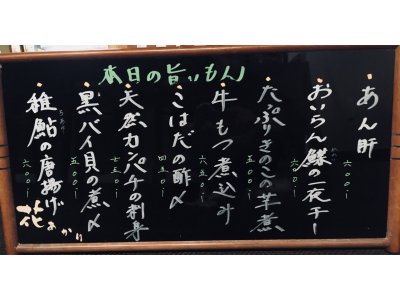 本日の旨いもん
あん肝 六〇〇ー
おいらん鰈の一夜干ー 六〇〇ー
たっぷりきのこの芋煮 五〇〇ー
牛もつ煮込み 六五〇ー
こはだの酢〆 四五〇ー
天然カンパチの刺身 七五〇ー
黒バイ貝の煮〆 五〇〇ー
稚鮎の唐揚げ 六〇〇ー
花あかり